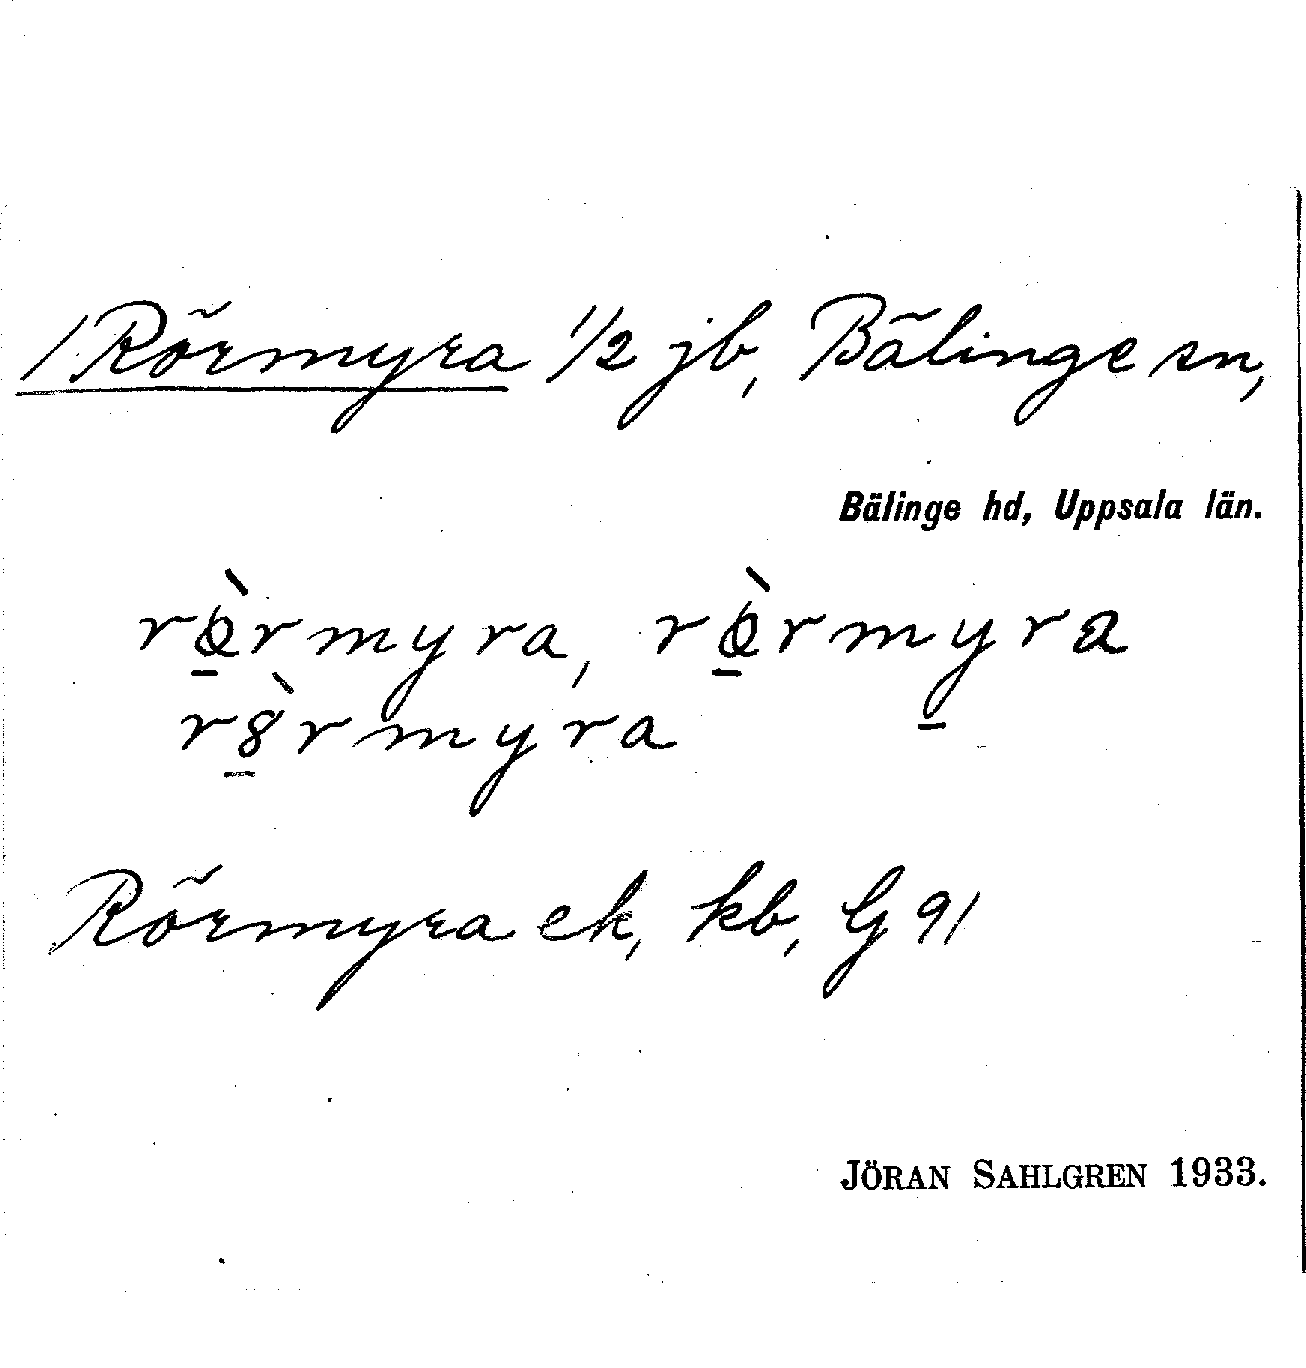 1 Rörmyra 1/2 jb, Bälinge sn,
Bälinge hd, Uppsala län.
rø̠̀rmyra, rø̠̀rmy̠ra
r8̠̀rmyra
Rörmyra ek, kb, G 91
JÖRAN SAHLGREN 1933.